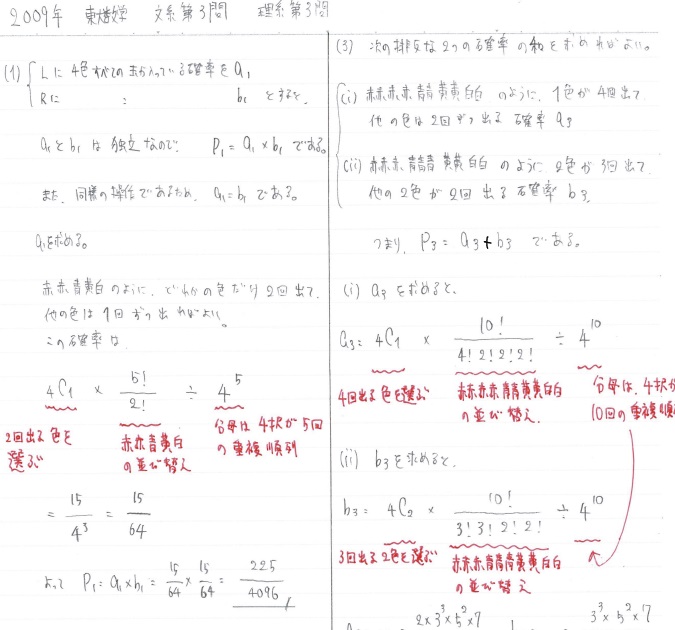 2009年 東大数学 文系第3問 理系第3問
(1) Lに4色すべての玉が入っている確率をa₁
Rに : b₁ とすると、
a₁とb₁は独立なので P₁ = a₁ × b₁ である。
また、同様の操作であるため、a₁ = b₁ である。
a₁を求める。
赤赤青黄白のように、どれかの色だけ2回出て、
他の色は1回ずつ出ればよい。
この確率は
₄C₁ × 5!/2! ÷ 4⁵
2回出る色を選ぶ
赤赤青黄白の並び替え
分母は4択が5回の重複順列
= 15/4³ = 15/64
よって P₁ = a₁ × b₁ = 15/64 × 15/64 = 225/4096
(3) 次の排反な2つの確率の和を求めればよい。
(i) 赤赤赤赤青青黄黄白白 のように、1色が4回出て
他の色は2回ずつ出る確率a₃
(ii) 赤赤赤青青青黄黄白白 のように2色が3回出て
他の2色が2回出る確率b₃
つまり、P₃ = a₃ + b₃ である。
(i) a₃を求めると、
a₃ = ₄C₁ × 10!/4!2!2!2! ÷ 4¹⁰
4回出る色を選ぶ
赤赤赤赤青青黄黄白白の並び替え
分母は、4択が
10回の重複順
(ii) b₃を求めると、
b₃ = ₄C₂ × 10!/3!3!2!2! ÷ 4¹⁰
3回出る2色を選ぶ
赤赤赤青青青黄黄白白の並び替え
2×3³×5²×7
3³×5²×7